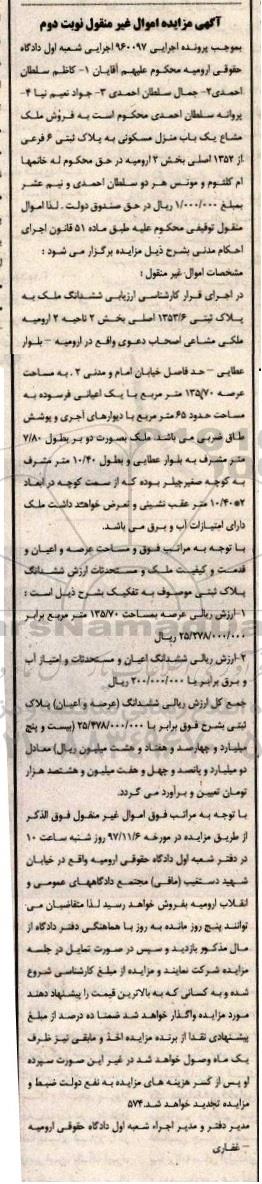 آگهی مزایده اموال غیر منقول نوبت دوم
بموجب پرونده اجرایی ۹۶۰۰۹۷ اجرایی شعبه اول دادگاه
حقوقی ارومیه محکوم علیهم آقایان ۱- کاظم سلطان
احمدی۲- جمال سلطان احمدی ۳- جواد نعیم نیا ۴-
پروانه سلطان احمدی محکوم است به فروش ملک
مشاع یک باب منزل مسکونی به پلاک ثبتی ۶ فرعی
از ۱۳۵۲ اصلی بخش ۲ ارومیه در حق محکوم له خانمها
ام کلثوم و مونس هر دو سلطان احمدی و نیم عشر
بمبلغ ۱/۰۰۰/۰۰۰ ریال در حق صندوق دولت . لذا اموال
منقول توقیفی محکوم علیه طبق ماده ۵۱ قانون اجرای
احکام مدنی بشرح ذیل مزایده برگزار می شود :
مشخصات اموال غیر منقول :
در اجرای قرار کارشناسی ارزیابی ششدانگ ملک به
پلاک ثبتی ۱۳۵۳/۶ اصلی بخش ۲ ناحیه ۲ ارومیه
ملکی مشاعی اصحاب دعوی واقع در ارومیه - بلوار
عطایی - حد فاصل خیابان امام و مدنی ۲ . به مساحت
عرصه ۱۳۵/۷۰ متر مربع با یک اعیانی فرسوده به
مساحت حدود ۶۵ متر مربع با دیوارهای آجری و پوشش
طاق ضربی می باشد. ملک بصورت دو بر بطول ۷/۸۰
متر مشرف به بلوار عطایی و بطول ۱۰/۴۰ متر مشرف
به کوچه صفیرچیلر بوده که از سمت کوچه در ابعاد
۲*۱۰/۴۰ متر عقب نشینی و تعرض خواهد داشت ملک
دارای امتیازات آب و برق می باشد.
با توجه به مراتب فوق و مساحت عرصه و اعیان و
قدمت و کیفیت ملک و مستحدثات ارزش ششدانگ
پلاک ثبتی موصوف به تفکیک بشرح ذیل است :
۱-ارزش ریالی عرصه بمساحت ۱۳۵/۷۰ متر مربع برابر
۲۵/۲۷۸/۰۰۰/۰۰۰ ریال
۲-ارزش ریالی ششدانگ اعیان و مستحدثات و امتیاز آب
و برق برابر با ۲۰۰/۰۰۰/۰۰۰ ریال
جمع کل ارزش ریالی ششدانگ (عرصه و اعیان) پلاک
ثبتی بشرح فوق برابر با ۲۵/۴۷۸/۰۰۰/۰۰۰ (بیست و پنج
میلیارد و چهارصد و هفتاد و هشت میلیون ریال) معادل
دو میلیارد و پانصد و چهل و هفت میلیون و هشتصد هزار
تومان تعیین و برآورد می گردد.
با توجه به مراتب فوق اموال غیر منقول فوق الذکر
از طریق مزایده در مورخه ۹۷/۱۱/۶ روز شنبه ساعت ۱۰
در دفتر شعبه اول دادگاه حقوقی ارومیه واقع در خیابان
شهید دستغیب (مافی) مجتمع دادگاههای عمومی و
انقلاب ارومیه بفروش خواهد رسید لذا متقاضیان می
توانند پنج روز مانده به روز با هماهنگی دفتر دادگاه از
مال مذکور بازدید و سپس در صورت تمایل در جلسه
مزایده شرکت نمایند و مزایده از مبلغ کارشناسی شروع
شده و به کسانی که به بالاترین قیمت را پیشنهاد دهند
مورد مزایده واگذار خواهد شد ضمنا ده درصد از مبلغ
پیشنهادی نقدا از برنده مزایده اخذ و مابقی نیز ظرف
یک ماه وصول خواهد شد در غیر این صورت سپرده
او پس از کسر هزینه های مزایده به نفع دولت ضبط و
مزایده تجدید خواهد شد.۵۷۴
مدیر دفتر و مدیر اجراء شعبه اول دادگاه حقوقی ارومیه
- غفاری